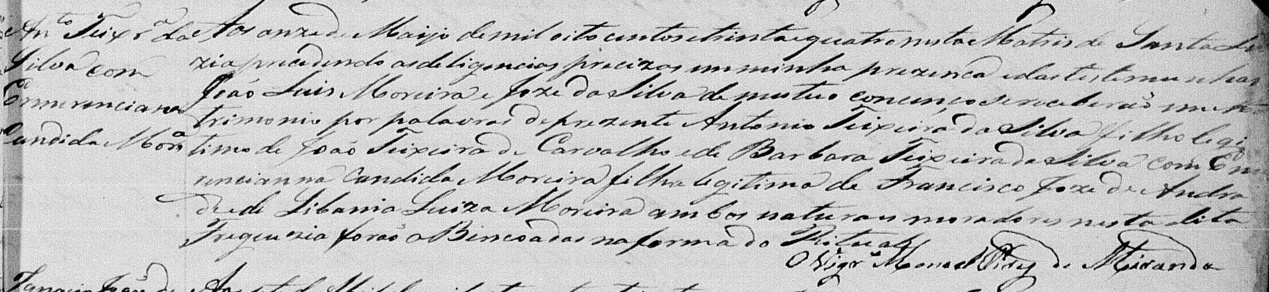 Ant.o Teixr.a da
Silva com
Emerenciana
Candida Mor.a
Aos onze de Maijo de mil oito centos e trinta e quatro nesta Matris de Santa Lu
zia precedendo as deligencias precizas em minha prezenca e das testemunhas
João Luis Moreira e Joze da Silva de mutuo concenço se receberão em Ma
trimonio por palavras de prezente Antonio Teixeira da Silva filho legi
timo de João Teixeira de Carvalho e de Barbara Teixeira da Silva com Eme
renciana Candida Moreira filha legitima de Francisco Joze de Andra
de e de Libania Luiza Moreira ambos naturais moradores nesta dita
Freguezia forão a Bincoados na forma do Ritual
O Vigr.o Manoel Pires de Miranda